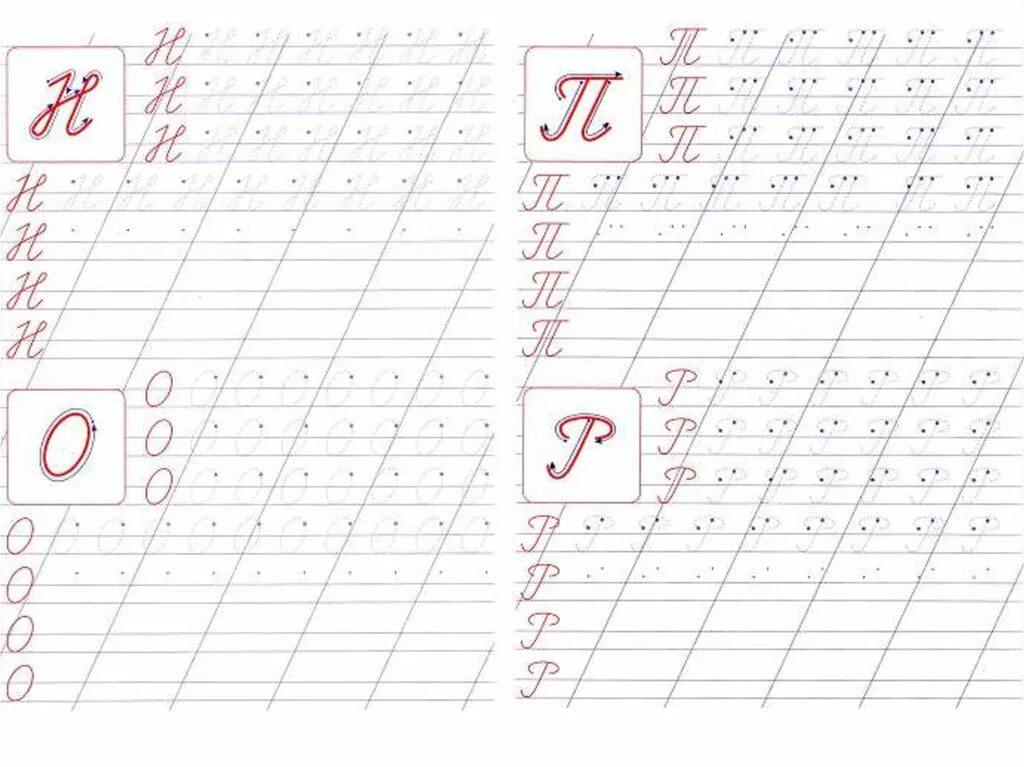 Н
Н Н Н Н Н Н Н
Н Н Н Н Н Н Н
Н Н Н Н Н Н Н
Н Н Н Н Н Н Н Н Н
Н
Н
Н
О
О О О О О О О О
О О О О О О О О
О О О О О О О О
О О О О О О О О О О О
О
О
О
П
П П П П П П
П П П П П П
П П П П П П
П П П П П П П П
П
П
П
Р
Р Р Р Р Р Р Р
Р Р Р Р Р Р Р
Р Р Р Р Р Р Р
Р Р Р Р Р Р Р Р Р
Р
Р
Р